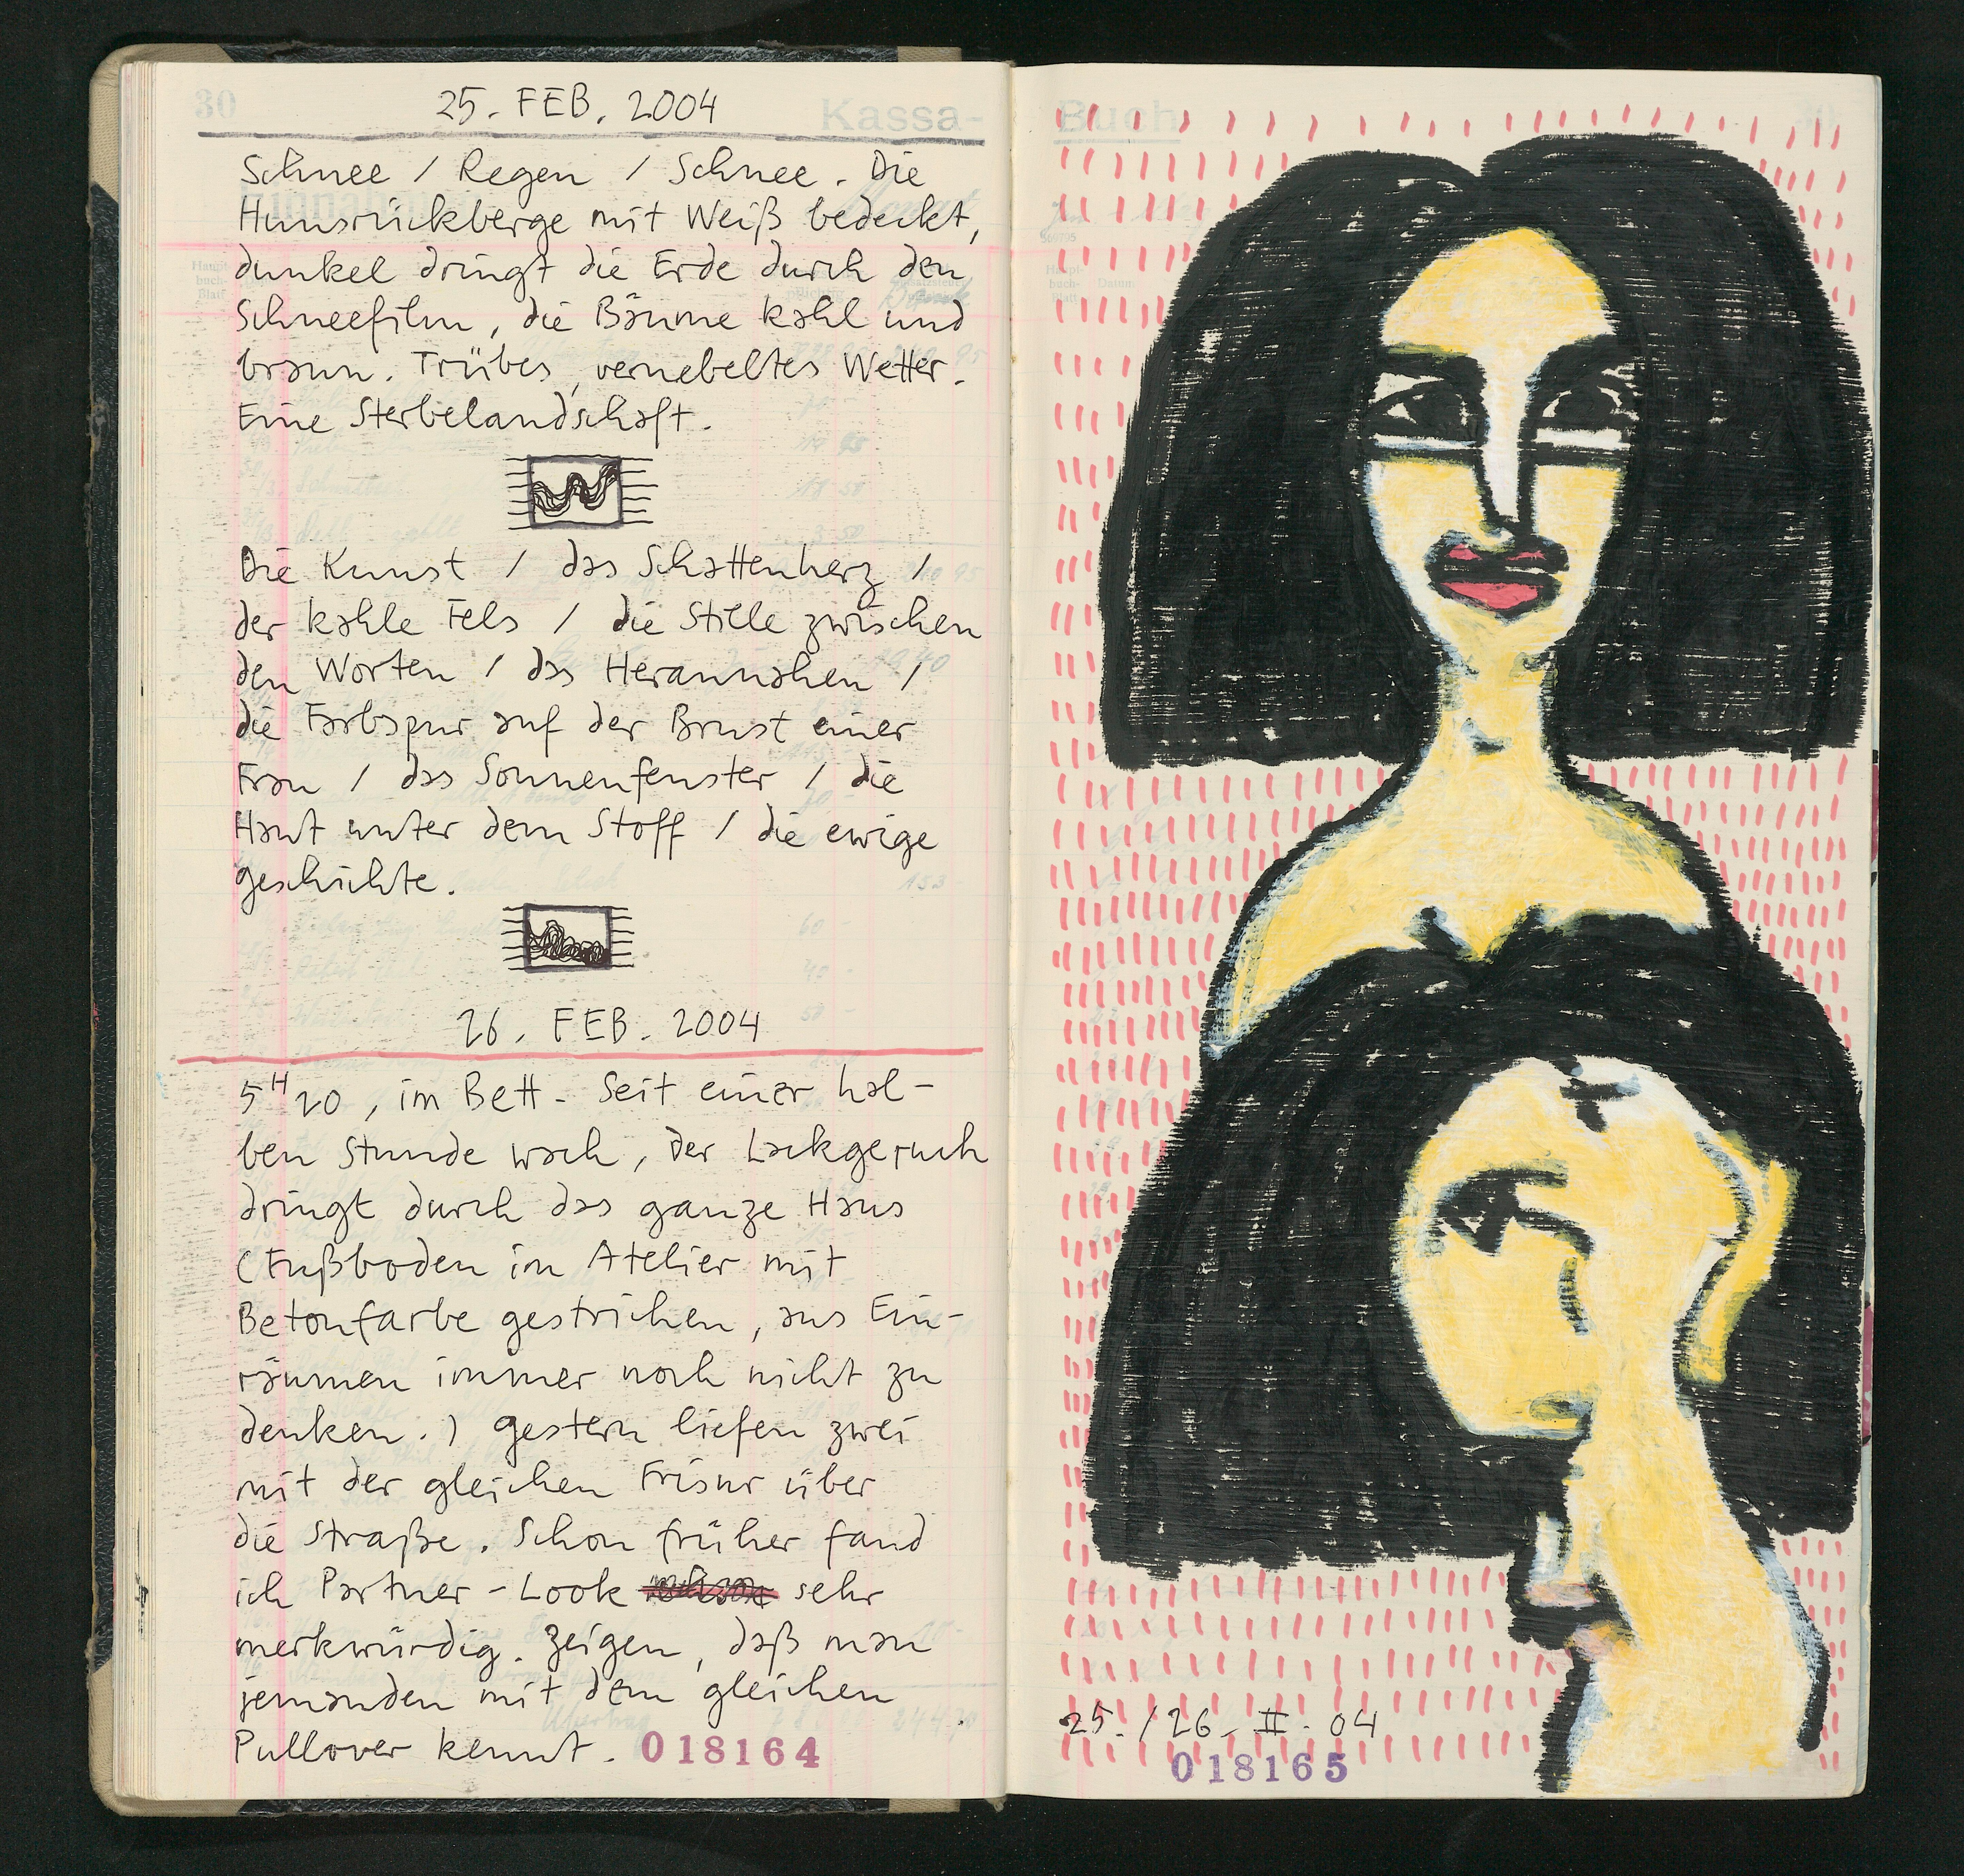 30
25. FEB. 2004
Kassa-
Schnee / Regen / Schnee. Die
Hunsrückberge mit Weiß bedeckt,
dunkel dringt die Erde durch den
Schneefilm, die Bäume kahl und
braun. Trübes, vernebeltes Wetter.
Eine Sterbelandschaft.
Die Kunst / das Schattenherz /
der kahle Fels / die Stille zwischen
den Worten / das Herannahen /
die Farbspur auf der Brust einer
Frau / das Sonnenfenster / die
Haut unter dem Stoff / die ewige
Geschichte.
26. FEB. 2004
5H20, im Bett. Seit einer hal-
ben Stunde wach, der Lackgeruch
dringt durch das ganze Haus
(Fußboden im Atelier mit
Betonfarbe gestrichen, ans Ein-
räumen immer noch nicht zu
denken.) Gestern liefen zwei
mit der gleichen Frisur über
die Straße. Schon früher fand
ich Partner-Look sehr
merkwürdig. Zeigen, daß man
jemanden mit dem gleichen
Pullover kennt.
018164
Buch
25./26. II. 04
018165